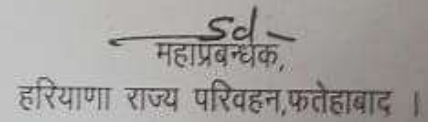 Sd-
महाप्रबन्धक,
हरियाणा राज्य परिवहन,फतेहाबाद ।